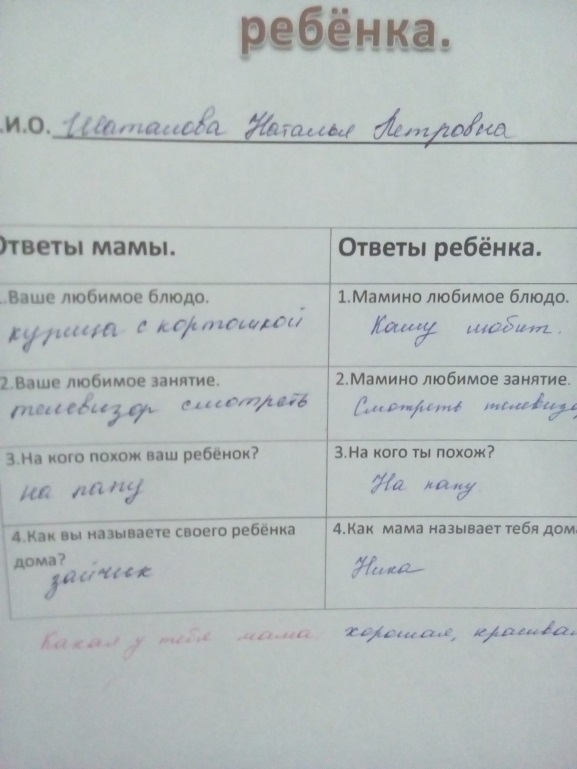 ребёнка.
.И.О. Шаталова Наталья Петровна
Ответы мамы. Ответы ребёнка.
.Ваше любимое блюдо. 1.Мамино любимое блюдо.
курица с кортошкой Кашу любит.
2.Ваше любимое занятие. 2.Мамино любимое занятие.
телевизор смотреть Смотреть телевизо
3.На кого похож ваш ребёнок? 3.На кого ты похож?
на папу На папу.
4.Как вы называете своего ребёнка 4.Как мама называет тебя дом
дома?
зайчик Ника
Какая у тебя мама хорошая, красива